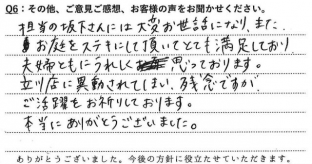 Q6：その他、ご意見ご感想、お客様の声をお聞かせください。
担当の坂下さんには大変お世話になり、また
お庭をステキにして頂いてとても満足しており
夫婦ともにうれしく思っております。
立川店に異動されてしまい、残念ですが
ご活躍をお祈りしております。
本当にありがとうございました。
ありがとうございました。今後の方針に役立たせていただきます。